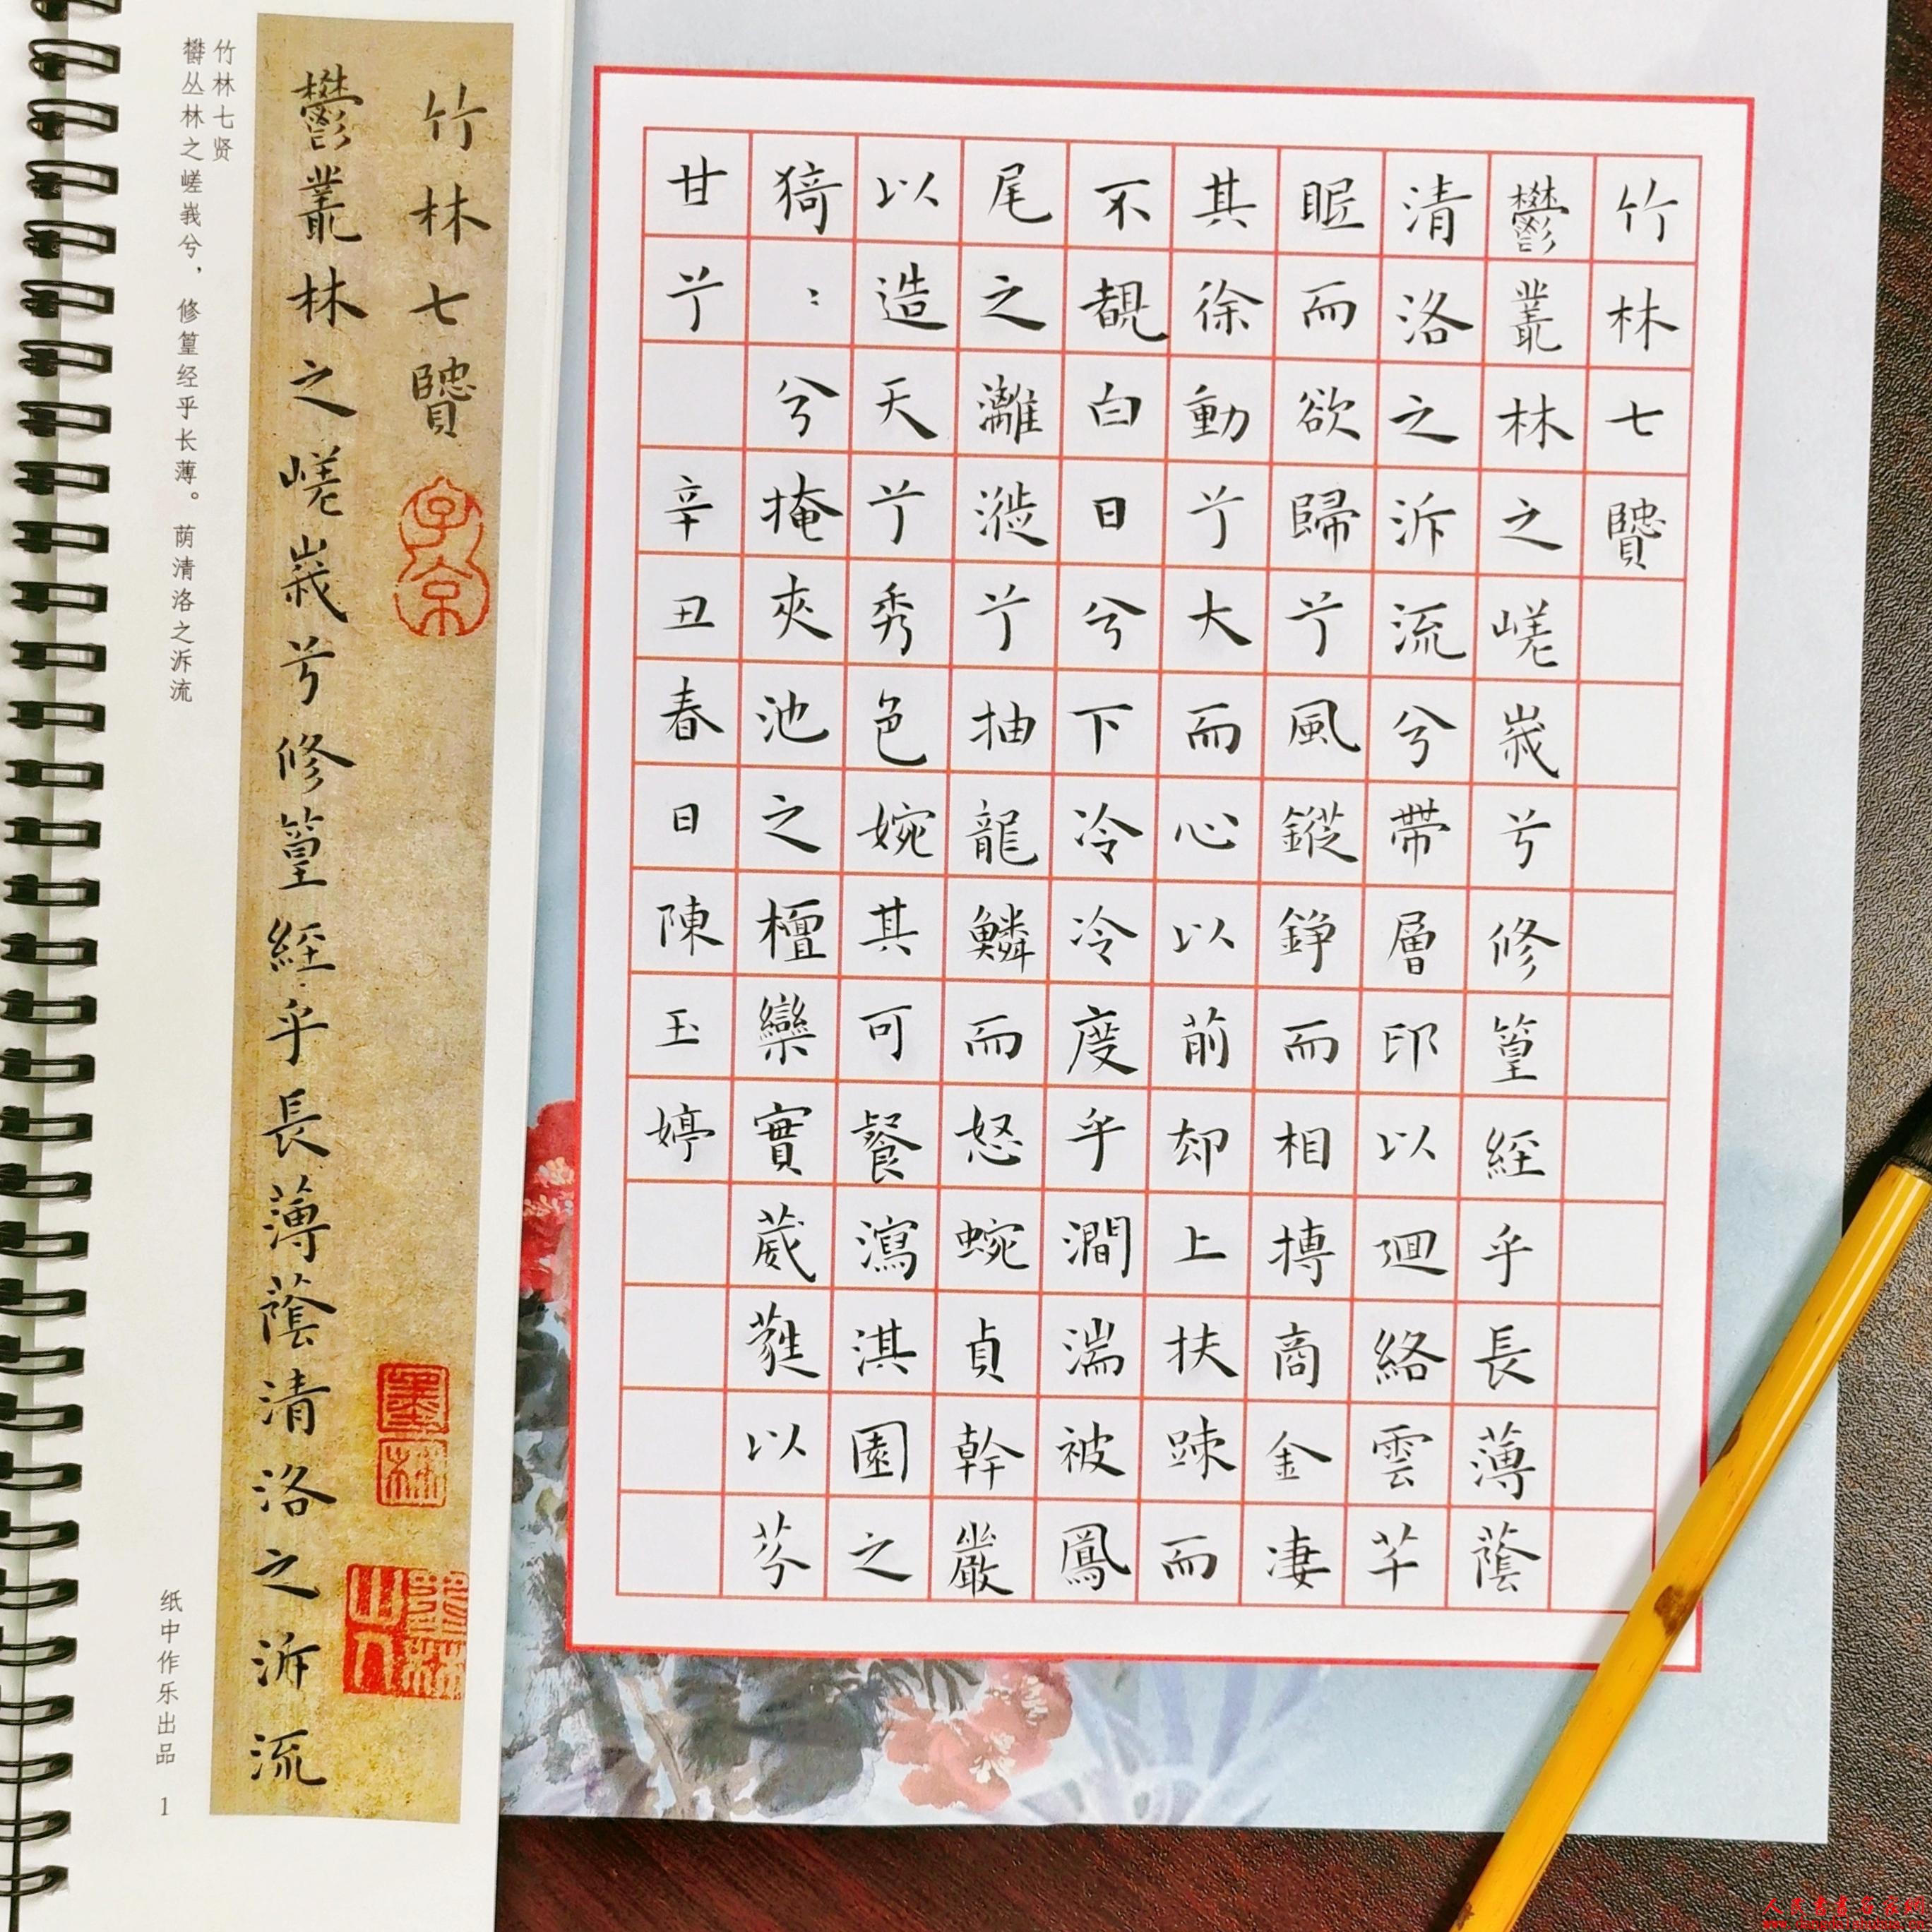 竹林七贤
欝丛林之嵯峩兮，修篁经乎长薄。荫清洛之泝流
竹林七賢
鬱叢林之嵯峩兮修篁經乎長薄蔭清洛之泝流
子京
墨林
墨林山人
纸中作乐出品 1
竹林七賢
鬱叢林之嵯峩兮修篁經乎長薄蔭
清洛之泝流兮帶層印以迴絡雲芊
眠而欲歸兮風鏦錚而相摶商金凄
其徐動兮大而心以前却上扶踈而
不覩白日兮下冷冷度乎澗湍被鳳
尾之灕漇兮抽龍鱗而怒蜿貞幹巖
以造天兮秀色婉其可餐瀉淇園之
猗：兮掩夾池之檀欒實葳蕤以芬
甘兮 辛丑春日陳玉婷